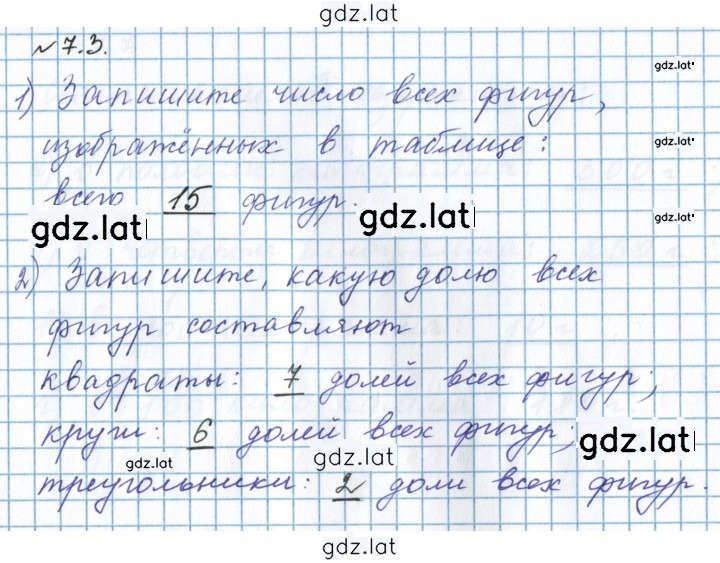 gdz.lat
№7.3.
gdz.lat
1) Запишите число всех фигур,
изображённых в таблице:
gdz.lat
всего 15 фигур.
gdz.lat
gdz.lat
gdz.lat
2) Запишите, какую долю всех
gdz.lat
фигур составляют
квадраты: 7 долей всех фигур;
круги: 6 долей всех фигур;
gdz.lat
gdz.lat
gdz.lat
треугольники: 2 доли всех фигур.
gdz.lat